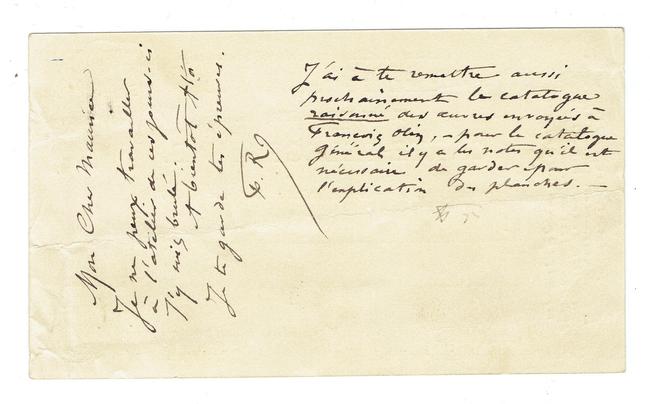 Mon Cher Maurice
Je ne peux travailler
à l'atelier de ces jours-ci
J'y suis brulé.
A bientôt
Je te garde les épreuves.
F. R
J'ai à te remettre aussi
prochainement le catalogue
raisonné des œuvres envoyés à
François, – pour le catalogue
général, il y a les notes qu'il est
nécessaire de garder pour
l'explication des planches. —